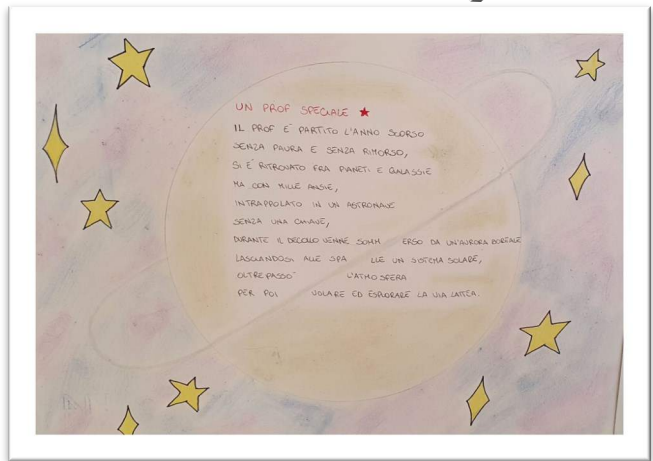 UN PROF SPECIALE
IL PROF È PARTITO L'ANNO SCORSO
SENZA PAURA E SENZA RIMORSO,
SI È RITROVATO FRA PIANETI E GALASSIE
MA CON MILLE ANSIE,
INTRAPPOLATO IN UN ASTRONAVE
SENZA UNA CHIAVE,
DURANTE IL DECOLLO VENNE SOMM ERSO DA UN'AURORA BOREALE
LASCIANDOSI ALLE SPA LLE UN SISTEMA SOLARE,
OLTREPASSÒ L'ATMOSFERA
PER POI VOLARE ED ESPLORARE LA VIA LATTEA.